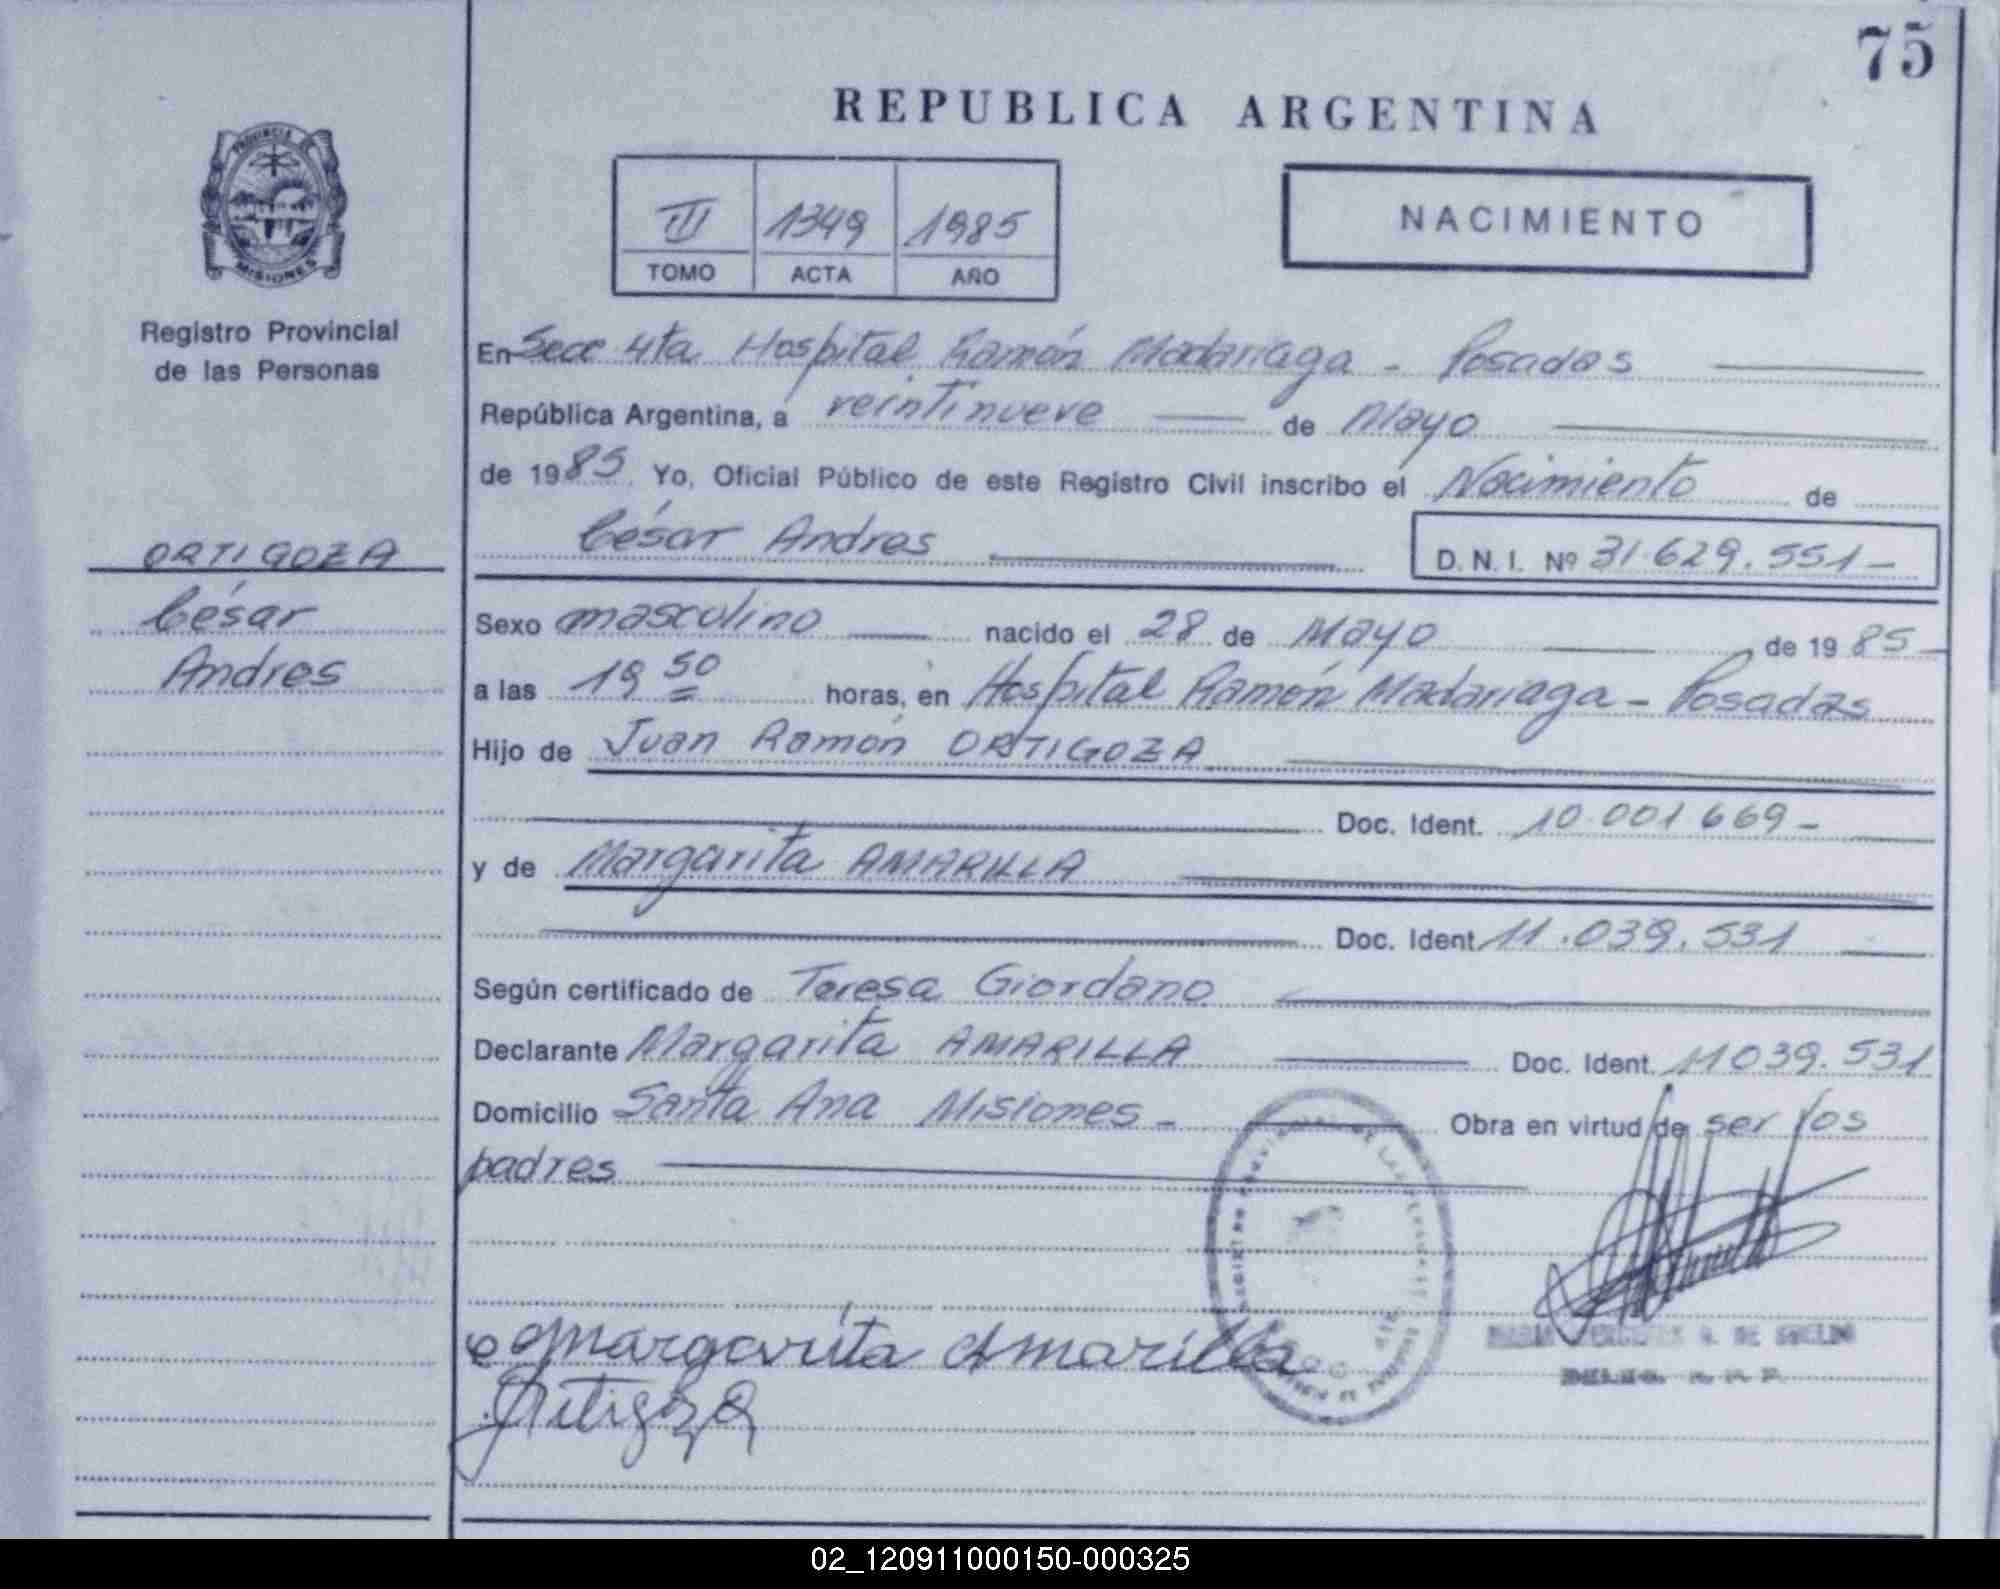 75
REPUBLICA ARGENTINA
PROVINCIA DE
MISIONES
III 1349 1985
TOMO ACTA AÑO
NACIMIENTO
Registro Provincial
de las Personas
En Secc 4ta Hospital Ramón Madariaga - Posadas
República Argentina, a veintinueve de Mayo
de 1985. Yo, Oficial Público de este Registro Civil inscribo el Nacimiento de
César Andres
D. N. I. Nº 31.629.551-
ORTIGOZA
César
Andres
Sexo masculino nacido el 28 de Mayo de 1985
a las 19 50 horas, en Hospital Ramón Madariaga - Posadas
Hijo de Juan Ramón ORTIGOZA
Doc. Ident. 10.001669-
y de Margarita AMARILLA
Doc. Ident. 11.039.531
Según certificado de Teresa Giordano
Declarante Margarita AMARILLA Doc. Ident. 11039.531
Domicilio Santa Ana Misiones - Obra en virtud de ser los
padres
Margarita Amarilla
Ortigoza
02_120911000150-000325